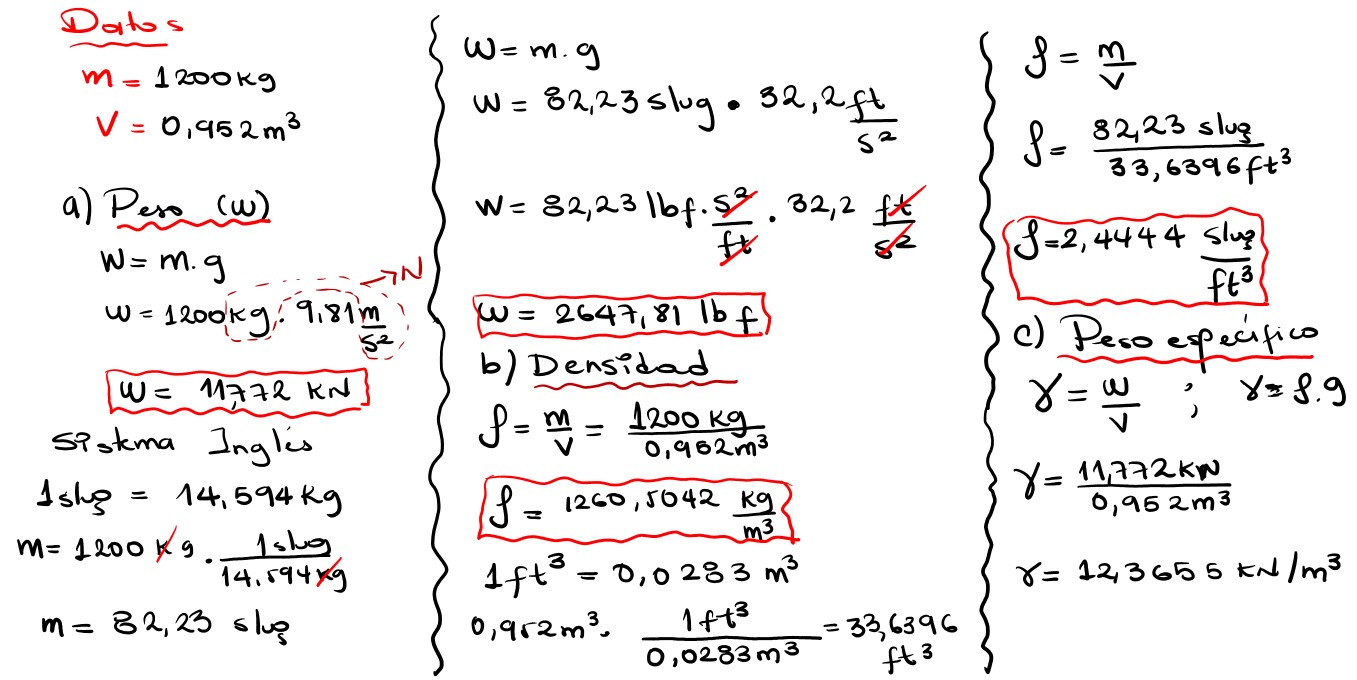 Datos
m = 1200 kg
V = 0,952 m³
a) Peso (W)
W = m.g
W = 1200 kg . 9,81 m/s² → N
W = 11,772 kN
Sistema Inglés
1 slug = 14,594 kg
m = 1200 kg . 1 slug / 14,594 kg
m = 82,23 slug
W = m.g
W = 82,23 slug • 32,2 ft/s²
W = 82,23 lbf . s²/ft . 32,2 ft/s²
W = 2647,81 lbf
b) Densidad
ρ = m/V = 1200 kg / 0,952 m³
ρ = 1260,5042 kg/m³
1 ft³ = 0,0283 m³
0,952 m³ . 1 ft³ / 0,0283 m³ = 33,6396 ft³
ρ = m/V
ρ = 82,23 slug / 33,6396 ft³
ρ = 2,4444 slug/ft³
c) Peso específico
γ = W/V ; γ = ρ.g
γ = 11,772 kN / 0,952 m³
γ = 12,3655 kN/m³